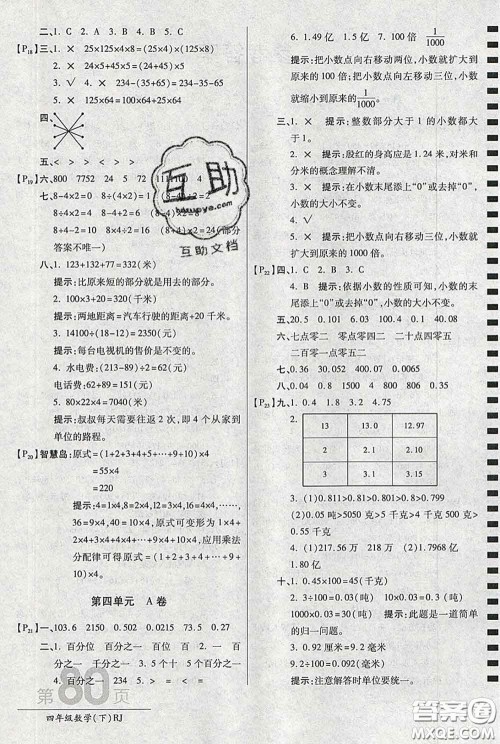 二、C B A C C
[P18] 三、1. × 125×125×4×8=(125×8)×
2. × 24×5+45×5=(24+45)×5
3. √ 4. × 234-35-65=234-(35+65)
5. × 125×64=100×64+25×64
四、
五、< > > > >
[P19] 六、800 7752 40
七、8-4×2=0 8÷(4×2)=1
8÷4×2=4 8-4÷2=6
8÷4-2=0
答案不唯一)
八、1. 123+132+77=332(米)
提示:比原来短的部分就是用去的部分。
2. 100×3+20=320(米)
提示:两地距离=汽车行驶的距离+20米。
3. 14100÷(18-12)=2350(元)
提示:每台电视机的售价是不变的。
4. 水电费:
电话费:62+51+89+143=345(元)
5. 80×22×4=7040(米)
提示:叔叔每天需要往返2次,即4个从家到
单位的路程。
[P20] 智慧岛:原式=(1+2+3+4+5+…+9+10)×4
=55×4
=220
提示:4=1×4,8=2×4,12=3×4,…,
36=9×4,40=10×4,原式可变形为1×4
+2×4+3×4+…+9×4+10×4,用乘法分
配律可得原式=(1+2+3+4+5+…+9+
10)×4。
第四单元 A卷
[P21] 一、103.6 2150 0.502 0.0215 73.5 0.27
二、1. 百分位 百分位 百 百 2. 十分之一
百分之一 3. 5个十 5个百分之一 百
分之一 4. 百分之一 5. > = < = >
第80页
四年级数学(下)RJ
6. 1.49亿 7. 0.85 8. 100倍 1/1000
提示:把小数点向右移动两位,小数就扩大到
原来的100倍;把小数点向左移动三位,小数
就缩小到原来的1/1000。
三、1. × 提示:整数部分大于1的小数都大
于1。
2. × 提示:殷红的身高应是1.24米,对米和
分米的概念理解不清。
3. × 提示:在小数末尾添上“0”或去掉“0”,
小数的大小不变。
4. √
5. × 提示:把小数点向右移动三位,小数就
扩大到原来的1000倍。
[P22] 四、1. C 2. B 3. C
4. C 提示:依据小数的性质可知,小数的末
尾添上“0”或去掉“0”,小数的大小不变。
五、20.5 0.108 6.07 100.01
六、七点零二 零点零四二 二十点四零五
二百零一点零五二
七、0.36 30.052 400.100 0.0065
八、0.04 0.8 4500 0.806 1.8 4.815
[P23] 九、1. 0.4 1.8 0.375
2.
13 13 12.97
3 3.1 3.08
3 2.1
3. (1)0.811>0.81>0.8>0.799
(2)5.05吨>5050克>5千克>4千克500克>
0.5千克
4. (1)217.56万 218万 (2)1.7983亿
1.80亿
十、1. 0.45×100=45(千克)
2. 3÷100=0.03(吨) 0.03×10=0.3(吨)
0.3×100=30(吨) 提示:此题是一道简单
的归一问题。
3. 0.92厘米=9.2毫米 9.2÷10=0.92(毫米)
9.2÷100=0.092(毫米)
提示:注意解答时单位换算。
互助
互助文档
答案圈
MXQE.COM